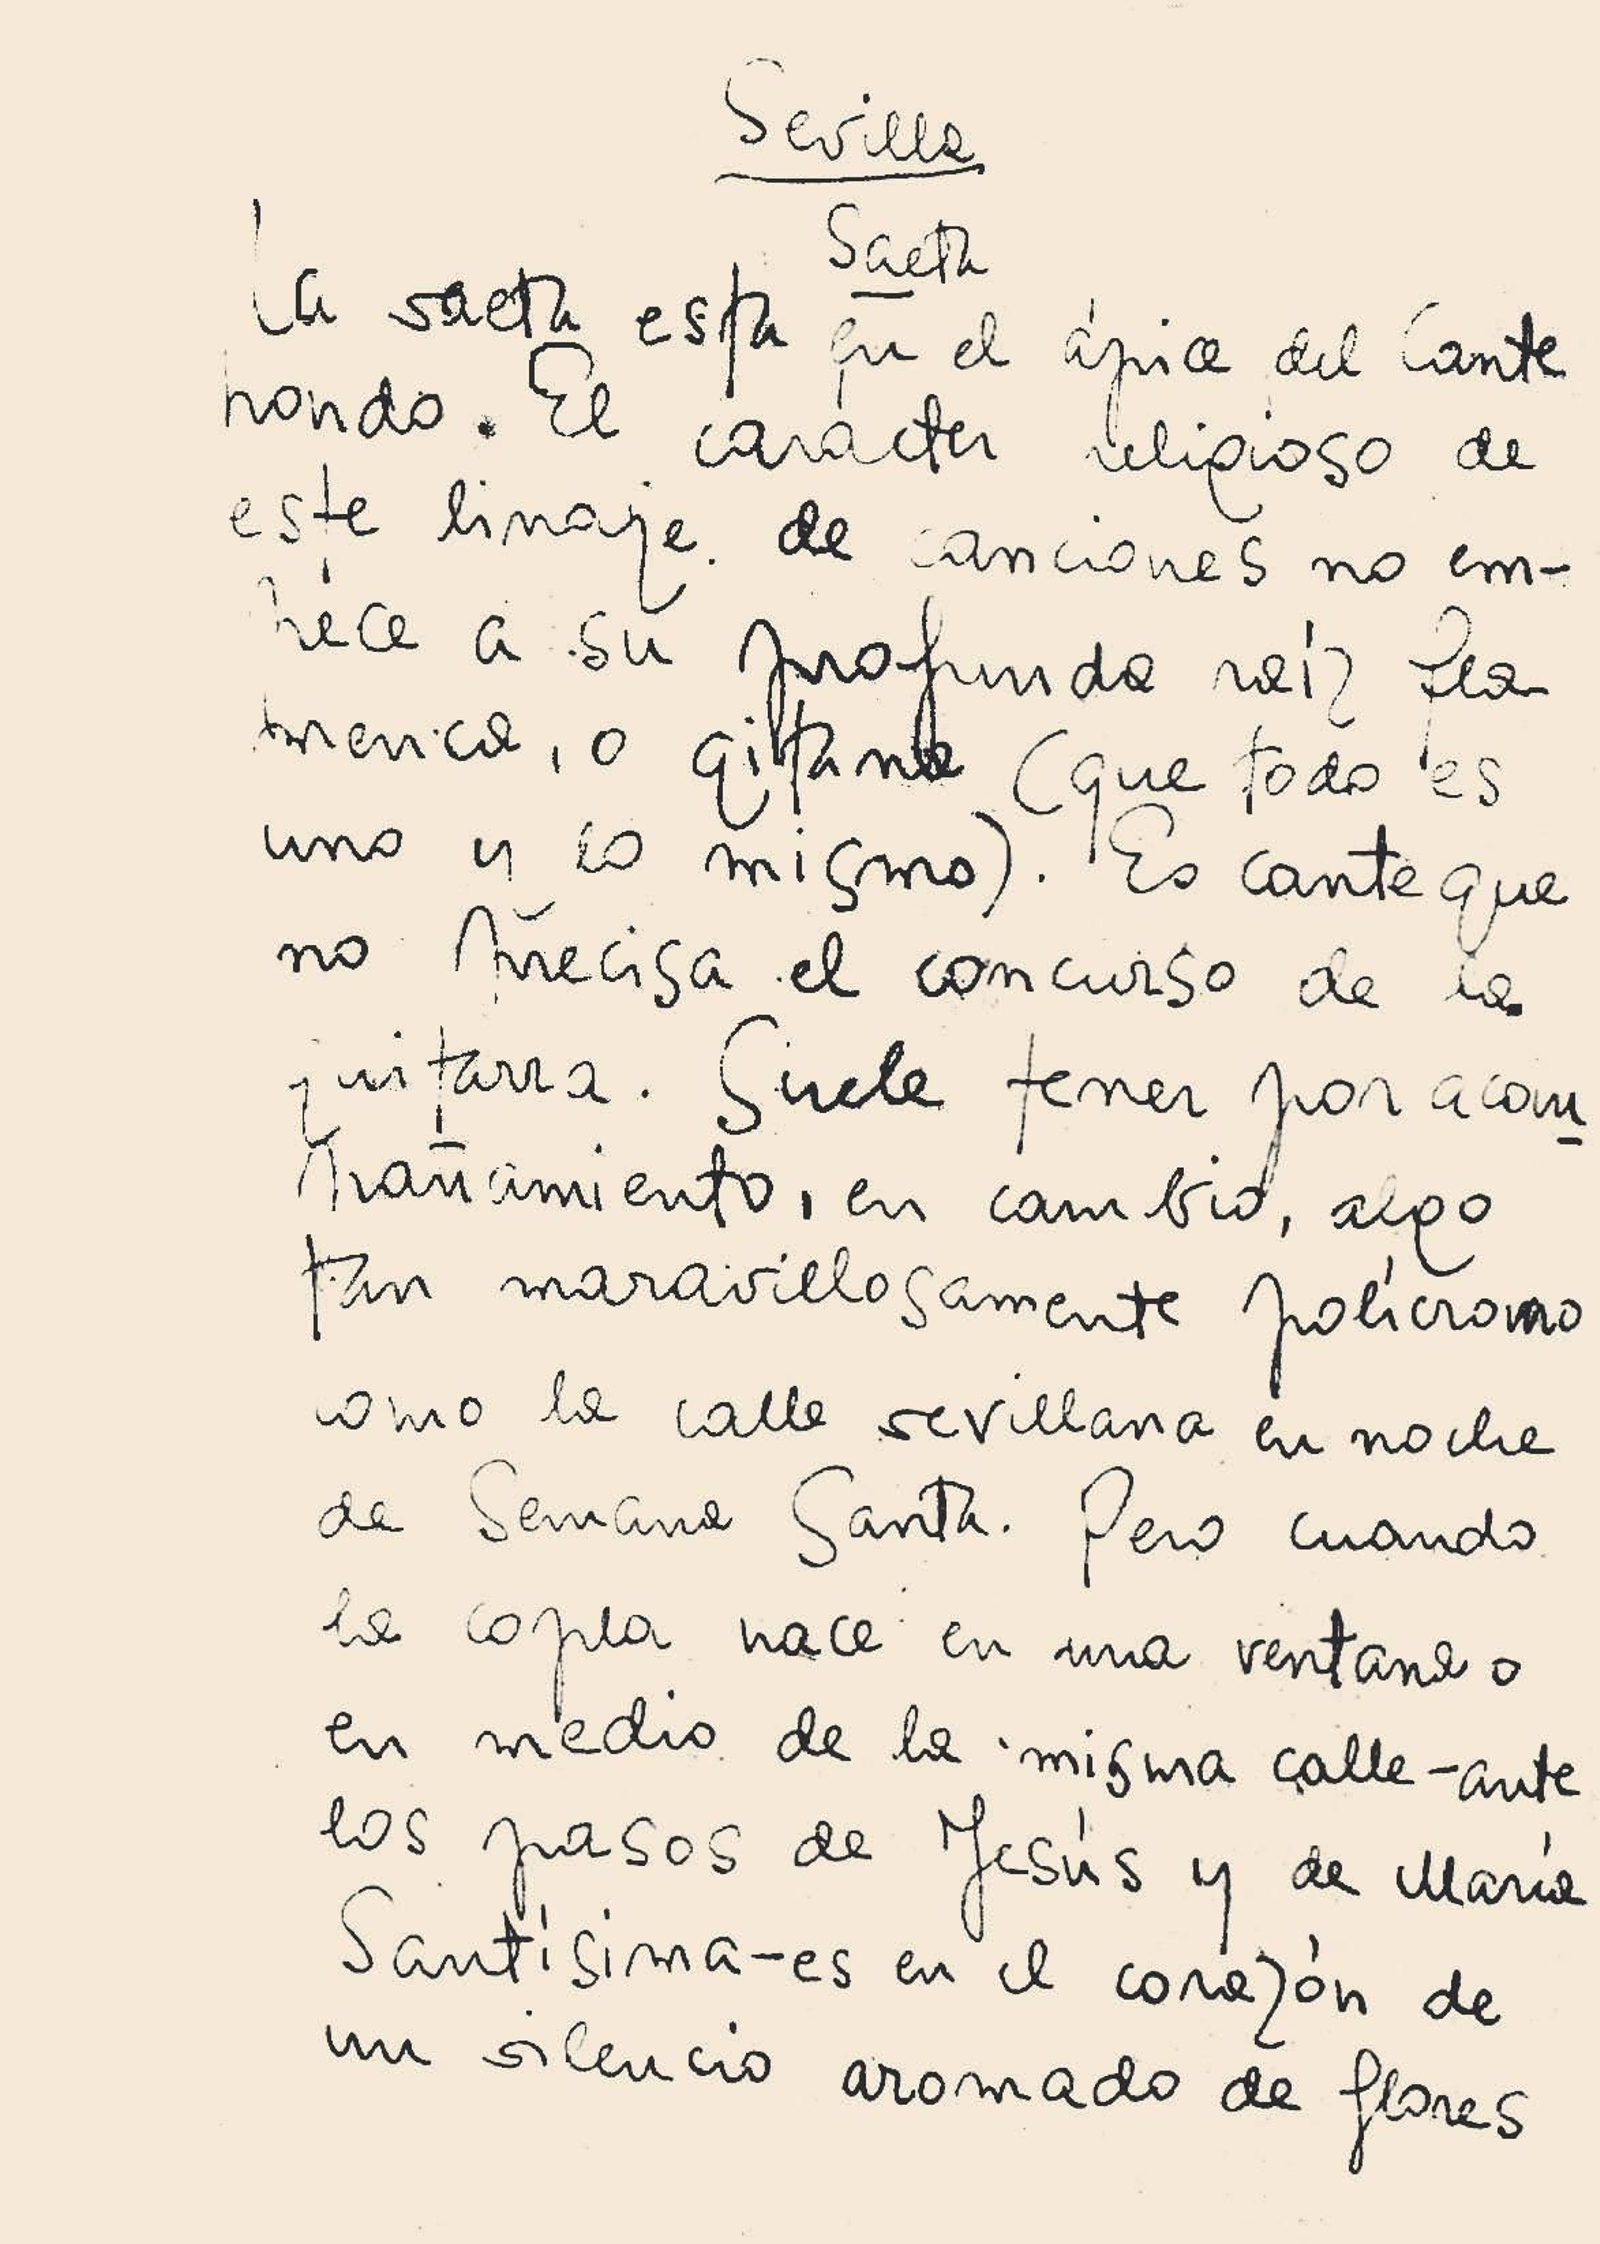 Sevilla
Saeta
La saeta esta en el ápice del Cante
hondo. El caracter religioso de
este linaje de canciones no em-
pece a su profunda raíz fla-
menca, o gitana (que todo es
uno y lo mismo). Es cante que
no precisa el concurso de la
guitarra. Suele tener por acom
pañamiento, en cambio, algo
tan maravillosamente polícromo
como la calle sevillana en noche
de Semana Santa. Pero cuando
la copla nace en una ventana o
en medio de la misma calle-ante
los pasos de Jesús y de María
Santísima-es en el corazón de
un silencio aromado de flores